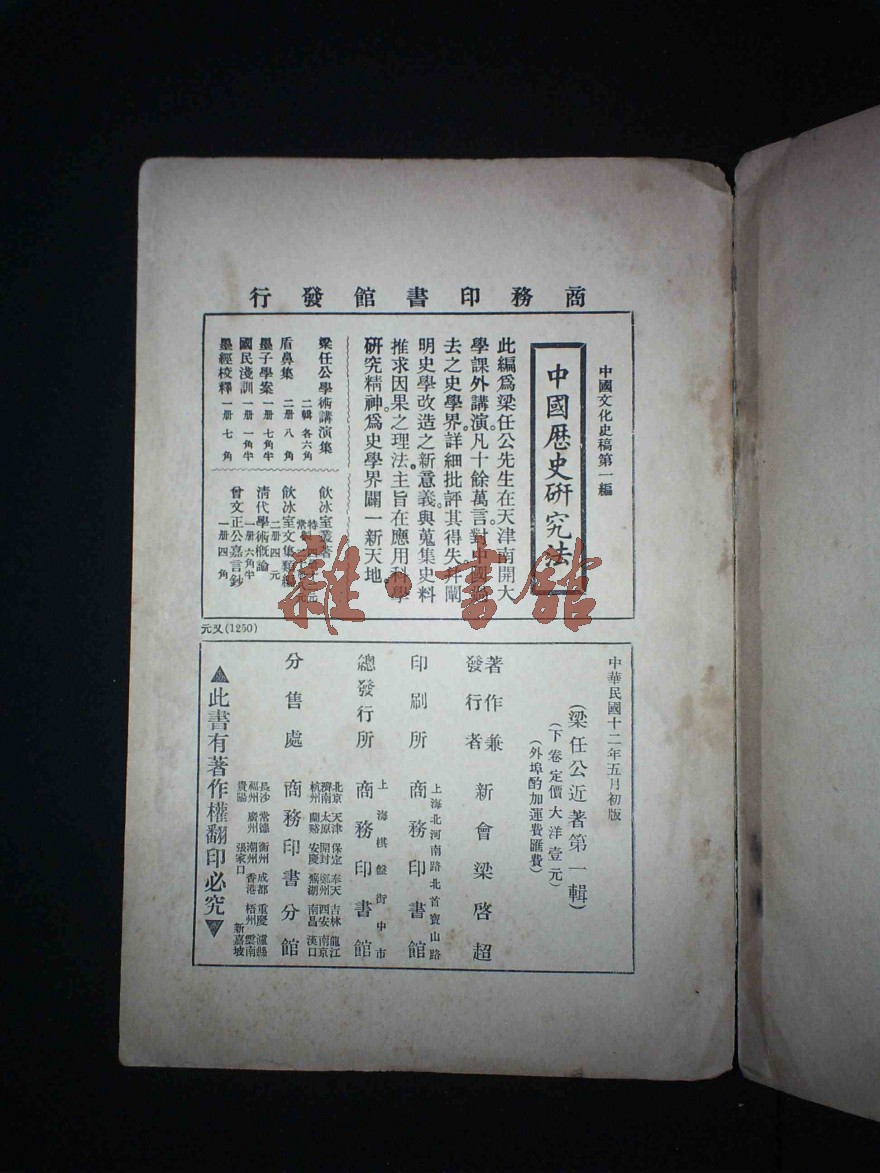 商務印書館發行
中國文化史稿第一編
中國歷史研究法
此編爲梁任公先生在天津南開大
學課外講演。凡十餘萬言。對中國過
去之史學界。詳細批評其得失。幷闡
明史學改造之新意義。與蒐集史料
推求因果之理法。主旨在應用科學
研究精神。爲史學界闢一新天地。
梁任公學術講演集
二輯 各六角
盾鼻集 二册 八角
墨子學案 一册 七角半
國民淺訓 一册 一角半
墨經校釋 一册 七角
飲冰室叢著
飲冰室文集類編
二册 四元
清代學術概論
一册 六角半
曾文正公嘉言鈔
一册 四角
元又(1250)
中華民國十二年五月初版
(梁任公近著第一輯)
(下卷定價大洋壹元)
(外埠酌加運費匯費)
著作兼發行者 新會梁啓超
上海北河南路北首寶山路
印刷所 商務印書館
上海棋盤街中市
總發行所 商務印書館
北京 天津 保定 奉天 吉林 龍江
濟南 太原 開封 鄭州 西安 南京
杭州 蘭谿 安慶 蕪湖 南昌 漢口
分售處 商務印書分館
長沙 常德 衡州 成都 重慶 瀘縣
福州 廣州 潮州 香港 梧州 雲南
貴陽 張家口 新嘉坡
▲此書有著作權翻印必究▼
雜·書館